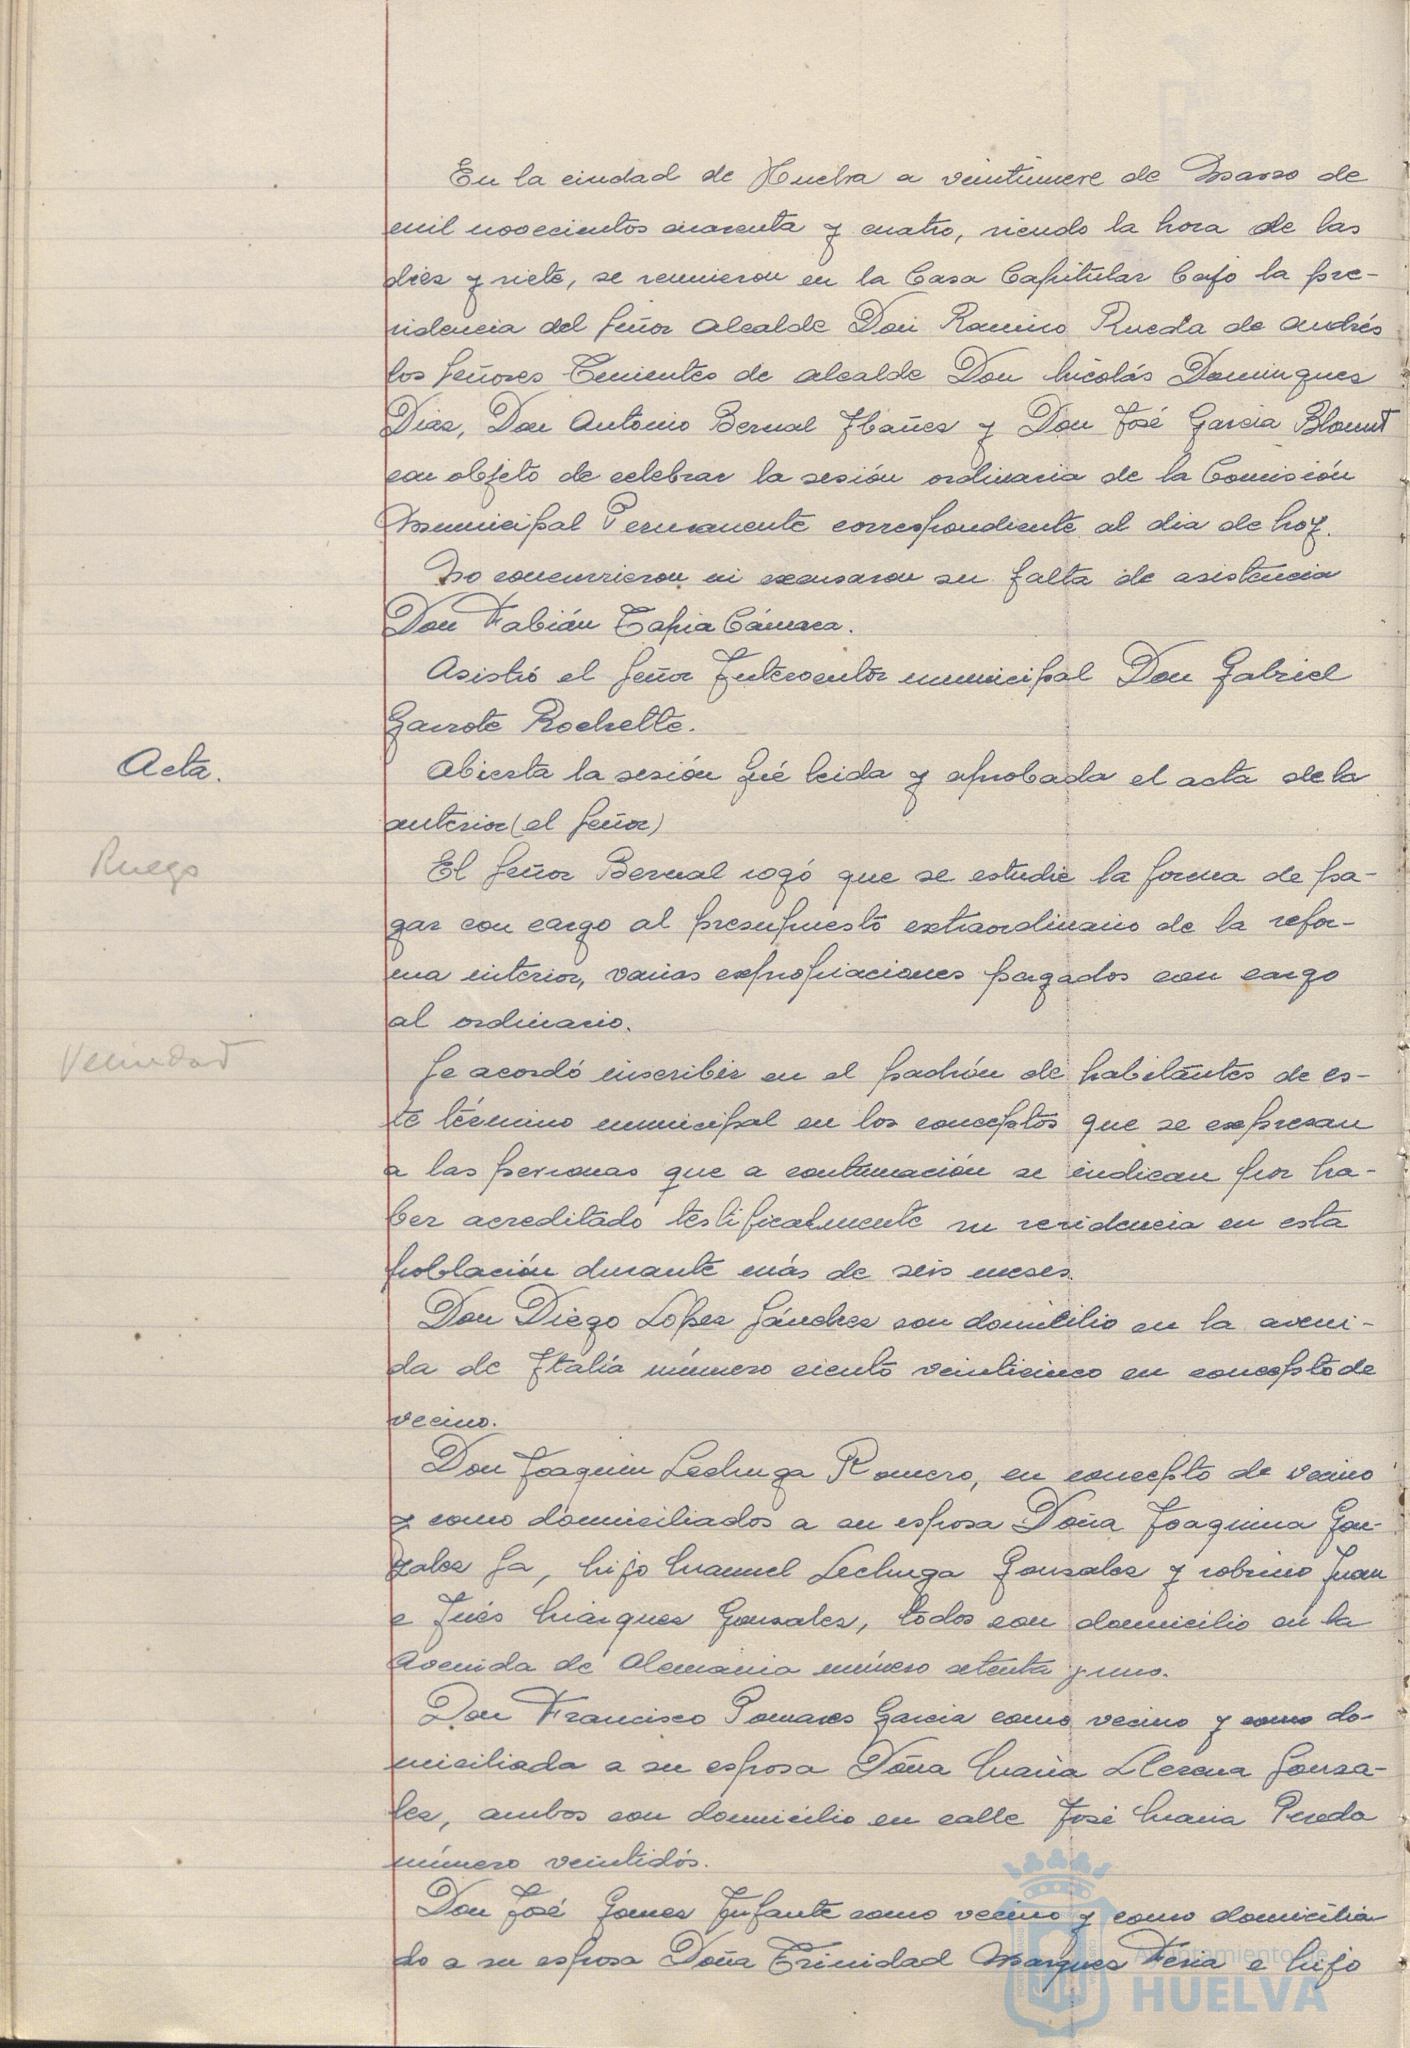 En la ciudad de Huelva a veintinueve de Marzo de
mil novecientos cuarenta y cuatro, siendo la hora de las
diez y siete, se reunieron en la Casa Capitular bajo la pre-
sidencia del Señor Alcalde Don Ramiro Rueda de Andrés
los Señores Tenientes de Alcalde Don Nicolás Dominguez
Diaz, Don Antonio Bernal Ibañez y Don José Garcia Blount
con objeto de celebrar la sesión ordinaria de la Comisión
Municipal Permanente correspondiente al dia de hoy.
No concurrieron ni excusaron su falta de asistencia
Don Fabián Tapia Cámara.
Asistió el Señor Interventor municipal Don Gabriel
Garrote Rochette.
Acta.
Abierta la sesión fué leida y aprobada el acta de la
anterior (el Señor)
Ruego
El Señor Bernal rogó que se estudie la forma de pa-
gar con cargo al presupuesto extraordinario de la refor-
ma interior, varias expropiaciones pagados con cargo
al ordinario.
Vecindad
Se acordó inscribir en el padrón de habitantes de es-
te término municipal en los conceptos que se expresan
a las personas que a continuación se indican por ha-
ber acreditado testificalmente su residencia en esta
población durante más de seis meses.
Don Diego Lopez Sánchez con domicilio en la aveni-
da de Italia número ciento veinticinco en concepto de
vecino.
Don Joaquin Lechuga Romero, en concepto de vecino
y como domiciliados a su esposa Doña Joaquina Gon-
zalez Sa, hijo Manuel Lechuga Gonzalez y sobrino Juan
e Inés Márquez Gonzalez, todos con domicilio en la
Avenida de Alemania número setenta y uno.
Don Francisco Pomares Garcia como vecino y como do-
miciliada a su esposa Doña Maria Llerena Gonza-
lez, ambos con domicilio en calle José Maria Pereda
número veintidós.
Don José Gomez Infante como vecino y como domicilia
do a su esposa Doña Trinidad Marquez Feria e hijo
Ayuntamiento de
HUELVA